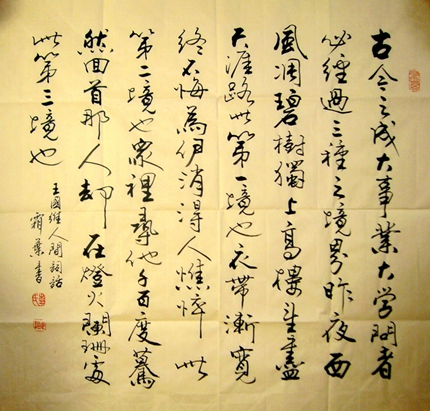 古今之成大事業大学問者
必經過三種之境界昨夜西
風凋碧樹獨上高樓望盡
天涯路此第一境也衣帶漸寬
終不悔為伊消得人憔悴此
第二境也眾裡尋他千百度驀
然回首那人却在燈火闌珊處
此第三境也
王國維人間詞話
霜葉書